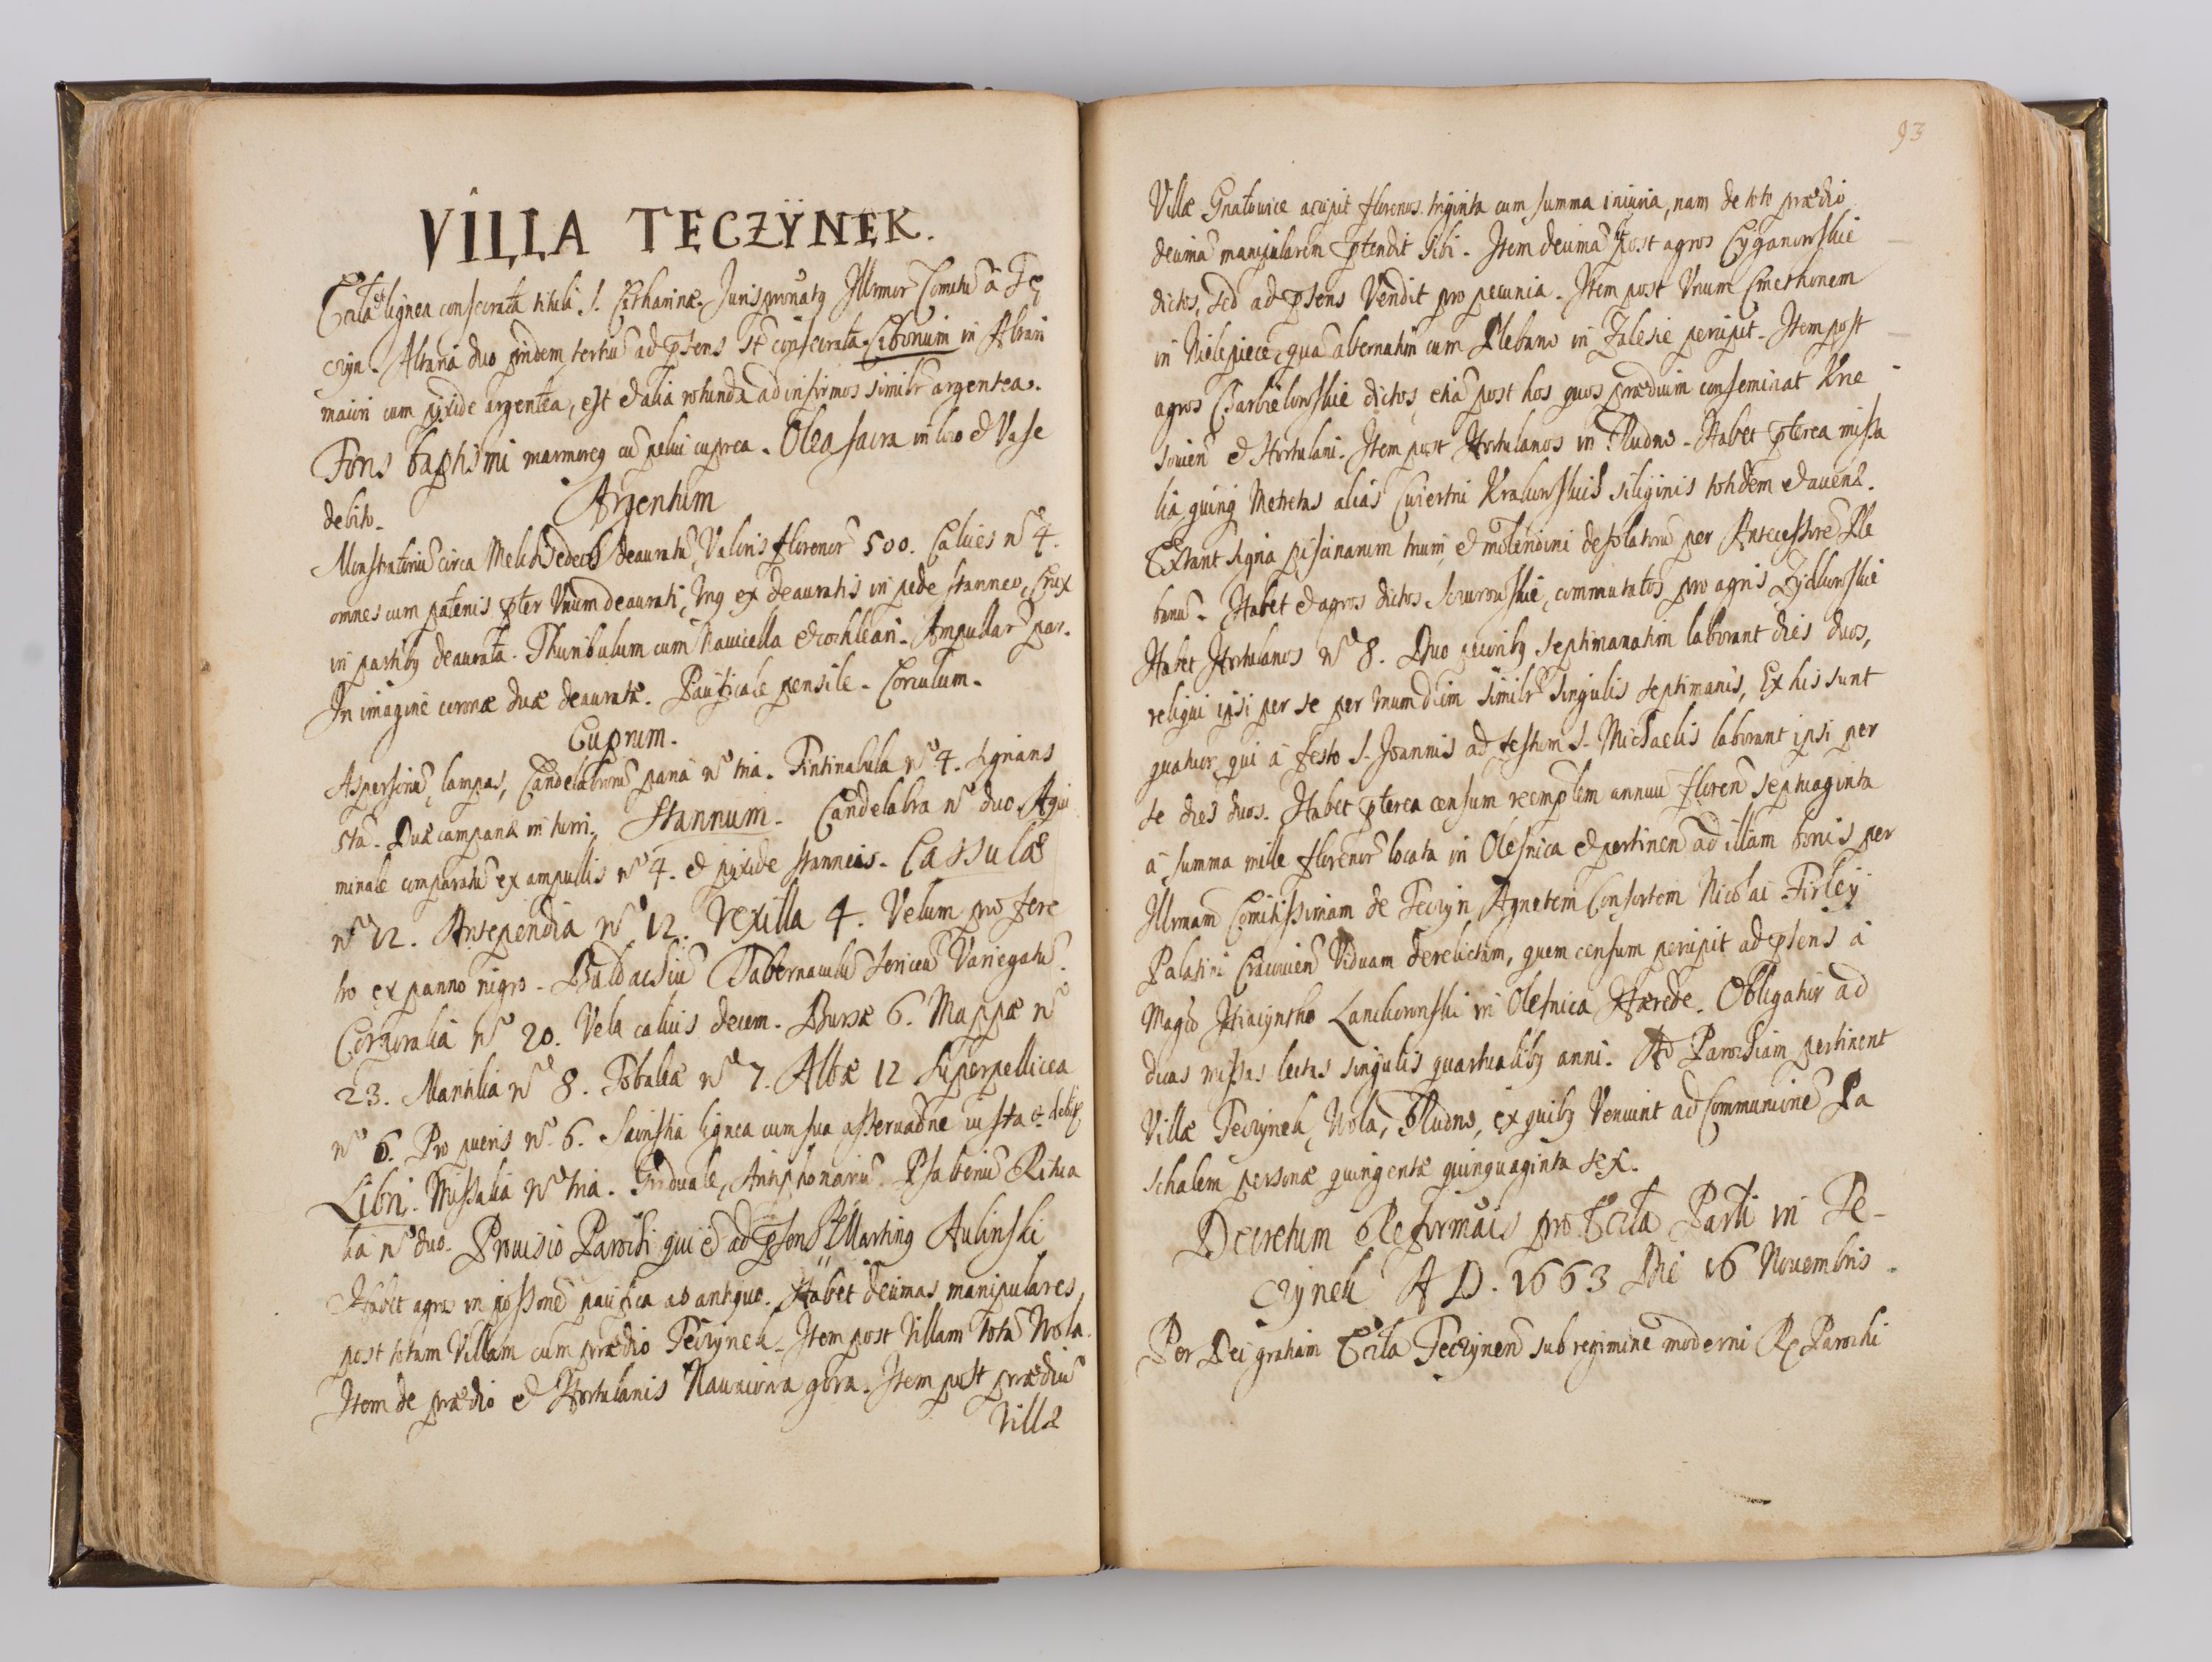 VILLA TĘCZŸNEK.
Eccla lignea consecrata tituli S. Catharinæ. Juris pronatꝰ Illrmor Comitũ a Tę
czyn. Altaria duo pridem tertiũ ad pñsens st̃ consecrata. Ciborium in Altari
maiori cum pixide argentea, est et alia rotunda ad infirmos similr argentea.
Fons baptismi marmoreꝰ cũ pelui cuprea. Olea sacra in loco et Vase
debito.
Argentum
Monstratoriũ circa Melchisedech deauratũ, Valoris florenor 500. Calices nº 4.
omnes cum patenis pter Vnum deaurati, Vnꝰ ex deauratis in pede stanneo, Crux
in partibꝰ deaurata. Thuribulum cum Nauicella et cochleari. Ampullar par.
In imagine coronæ duæ deauratæ. Pacificale pensile. Corculum.
Cuprum.
Aspersoriũ, lampas, Candelabrorũ paria nº tria. Tintinabula nº 4. Lignans
sta. Duæ campanæ in turri. Stannum. Candelabra nº duo Aqui
minale comparatũ ex ampullis nº 4. et pixide stanneis. Cassulæ
nº 12. Antependia nº 12. Vexilla 4. Velum pro fere
tro ex panno nigro. Baldachiũ Tabernaculũ sericeũ Variegatũ.
Corporalia nº 20. Vela calicis decem. Bursæ 6. Mappæ nº
23. Mantilia nº 8. Tobaleæ nº 7. Albæ 12 Superpellicea
nº 6. Pro pueris nº 6. Sacristia lignea cum sua asseruatne iusta et debita
Libri. Missalia nº tria. Graduale, Antiphonariũ Psalteriũ Ritua
lia nº duo. Prouisio Parochi qui ẽ ad pñsens R Martinꝰ Aulinski
Habet agros in possone pacifica ab antiquo. Habet decimas manipulares
post totam Villam cum prædio Teczynek. Item post Villam totã Wola.
Item de prædio et Hortulanis Nawoiowa gora. Item post prædiũ
Villæ
93
Villæ Gnatowice accipit florenos triginta cum summa iniuria, nam de toto prædio
decimã manipularem ptendit sibi. Item decimã post agros Cyganowskie
dictos, sed ad pñsens Vendit pro pecunia. Item post Vnum Cmethonem
in Nielepiece, quã alternatim cum Plebano in Zalesie percipit. Item post
agros Charbielowskie dictos, etiã post hos quos prædium conseminat Krze
souien et Hortulani. Item post Hortulanos in Rudno. Habet pterea missa
lia quinqꝫ Metretas alias Cwiertni Krakowskich siliginis totidem et auenæ.
Extant signa piscinarum trium, et molendini desolatorũ per Antecessorẽ Ple
banũ. Habet et agros dictos Scurowskie, commutatos pro agris Zydkowskie
Habet Hortulanos nº 8. Duo pecoribꝰ septimanatim laborant dies duos,
reliqui ipsi per se per vnum diem similr singulis septimanis, Ex his sunt
quatuor, qui a festo S. Joannis ad festum S. Michaelis laborant ipsi per
se dies duos. Habet pterea censum reemptlem annuũ floren septuaginta
a summa mille florenor locata in Olesnica et pertinen ad illam bonis per
Illrmam Comitissimam de Teczyn Agnetem Consortem Nicolai Firley
Palatini Cracouien Viduam derelictam, quem censum percipit ad pñsens a
Magco Hiacyntho Lanckoronski in Olesnica Hærede. Obligatur ad
duas missas lectas singulis quartualibꝰ anni. Ad Parochiam pertinent
Villæ Teczynek, Wola, Rudno, ex quibꝰ Veniunt ad Communionẽ Pa
schalem personæ quingentæ quinquaginta sex.
Decretum Reformais pro Eccla Parli in Te-
czynek A D. 1663 Die 16 Nouembris.
Per Dei gratiam Eccla Teczynen sub regimine moderni R Parochi